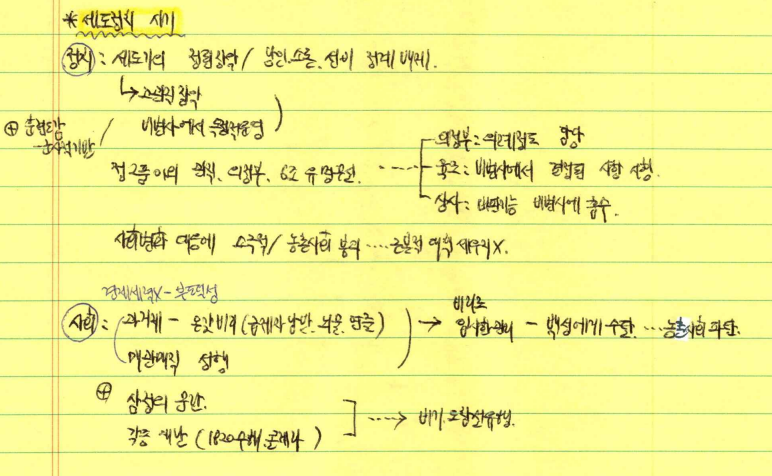 * 세도정치 시기
정치 : 세도가의 정권장악 / 남인, 소론, 선비 정계 배제.
↳ 고위직 장악
비변사에서 독점운영
⊕ 훈련도감
군사적기반
정2품 이하 관직, 의정부, 6조 유명무실 ----
의정부 : 의례적인 담당
육조 : 비변사에서 결정된 사항 시행.
삼사 : 비판기능 비변사에 흡수.
사회변화 대응에 소극적 / 농촌사회 붕괴 ···· 근본적 대책 세우지X.
견제세력X - 부도덕성
사회 : 과거제 - 온갖비리 (급제자 남발, 뇌물, 연줄)
매관매직 성행
→ 비리로 임시한관리 - 백성에게 수탈 ··· 농촌사회 파탄.
⊕ 삼정의 문란.
각종 재난 (1820 수해, 콜레라)
····> 비기, 도참설유행.